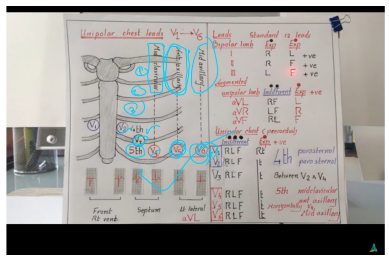 Unipolar chest leads V1 → V6
Mid clavicular
Ant. axillary
Mid axillary
①
②
③
V1 V2 4th
V3
5th V4 V5 V6
Front
Rt vent.
Septum
Lt lateral
aVL
Leads Standard 12 leads
Bipolar limb Exp
I R L +ve
II R F +ve
III L F +ve
Augmented
unipolar limb indifferent Exp
aVL RF L +ve
aVR LF R
aVF RL F
Unipolar chest (precordial)
indifferent Exp +ve
V1 RLF Rt 4th parasternal
V2 RLF Lt parasternal
V3 RLF Lt Between V2 & V4
V4 RLF Lt 5th midclavicular
V5 RLF Lt ant axillary
V6 RLF Lt Mid axillary